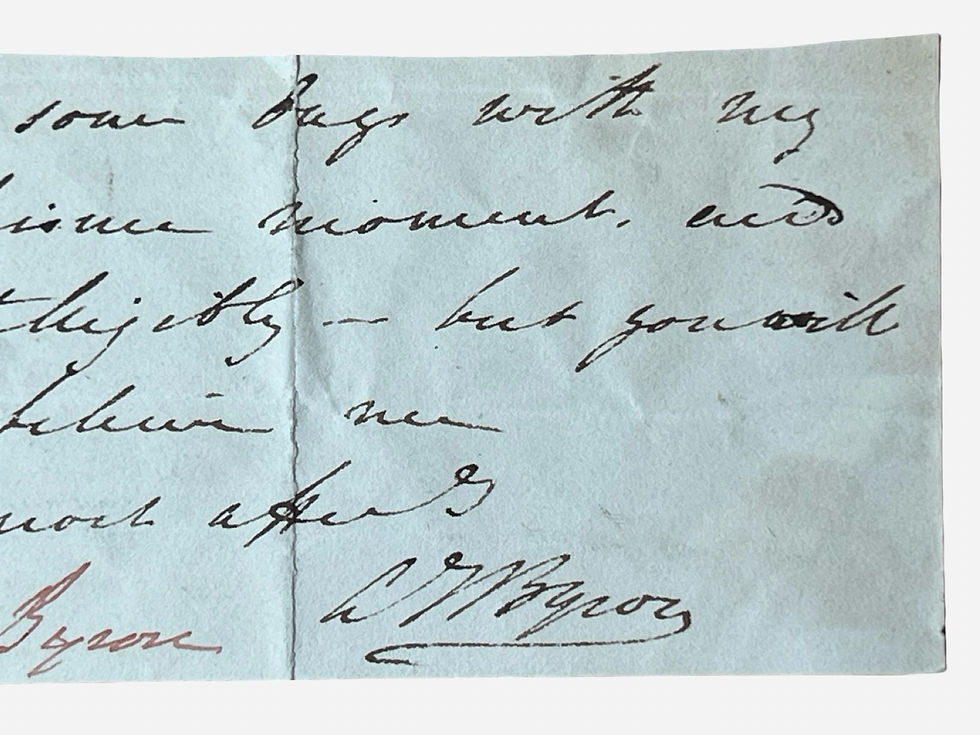 some bugs with my
moment, and
telligibly — but you will
believe me
most affec.ly
Byron A I N Byron